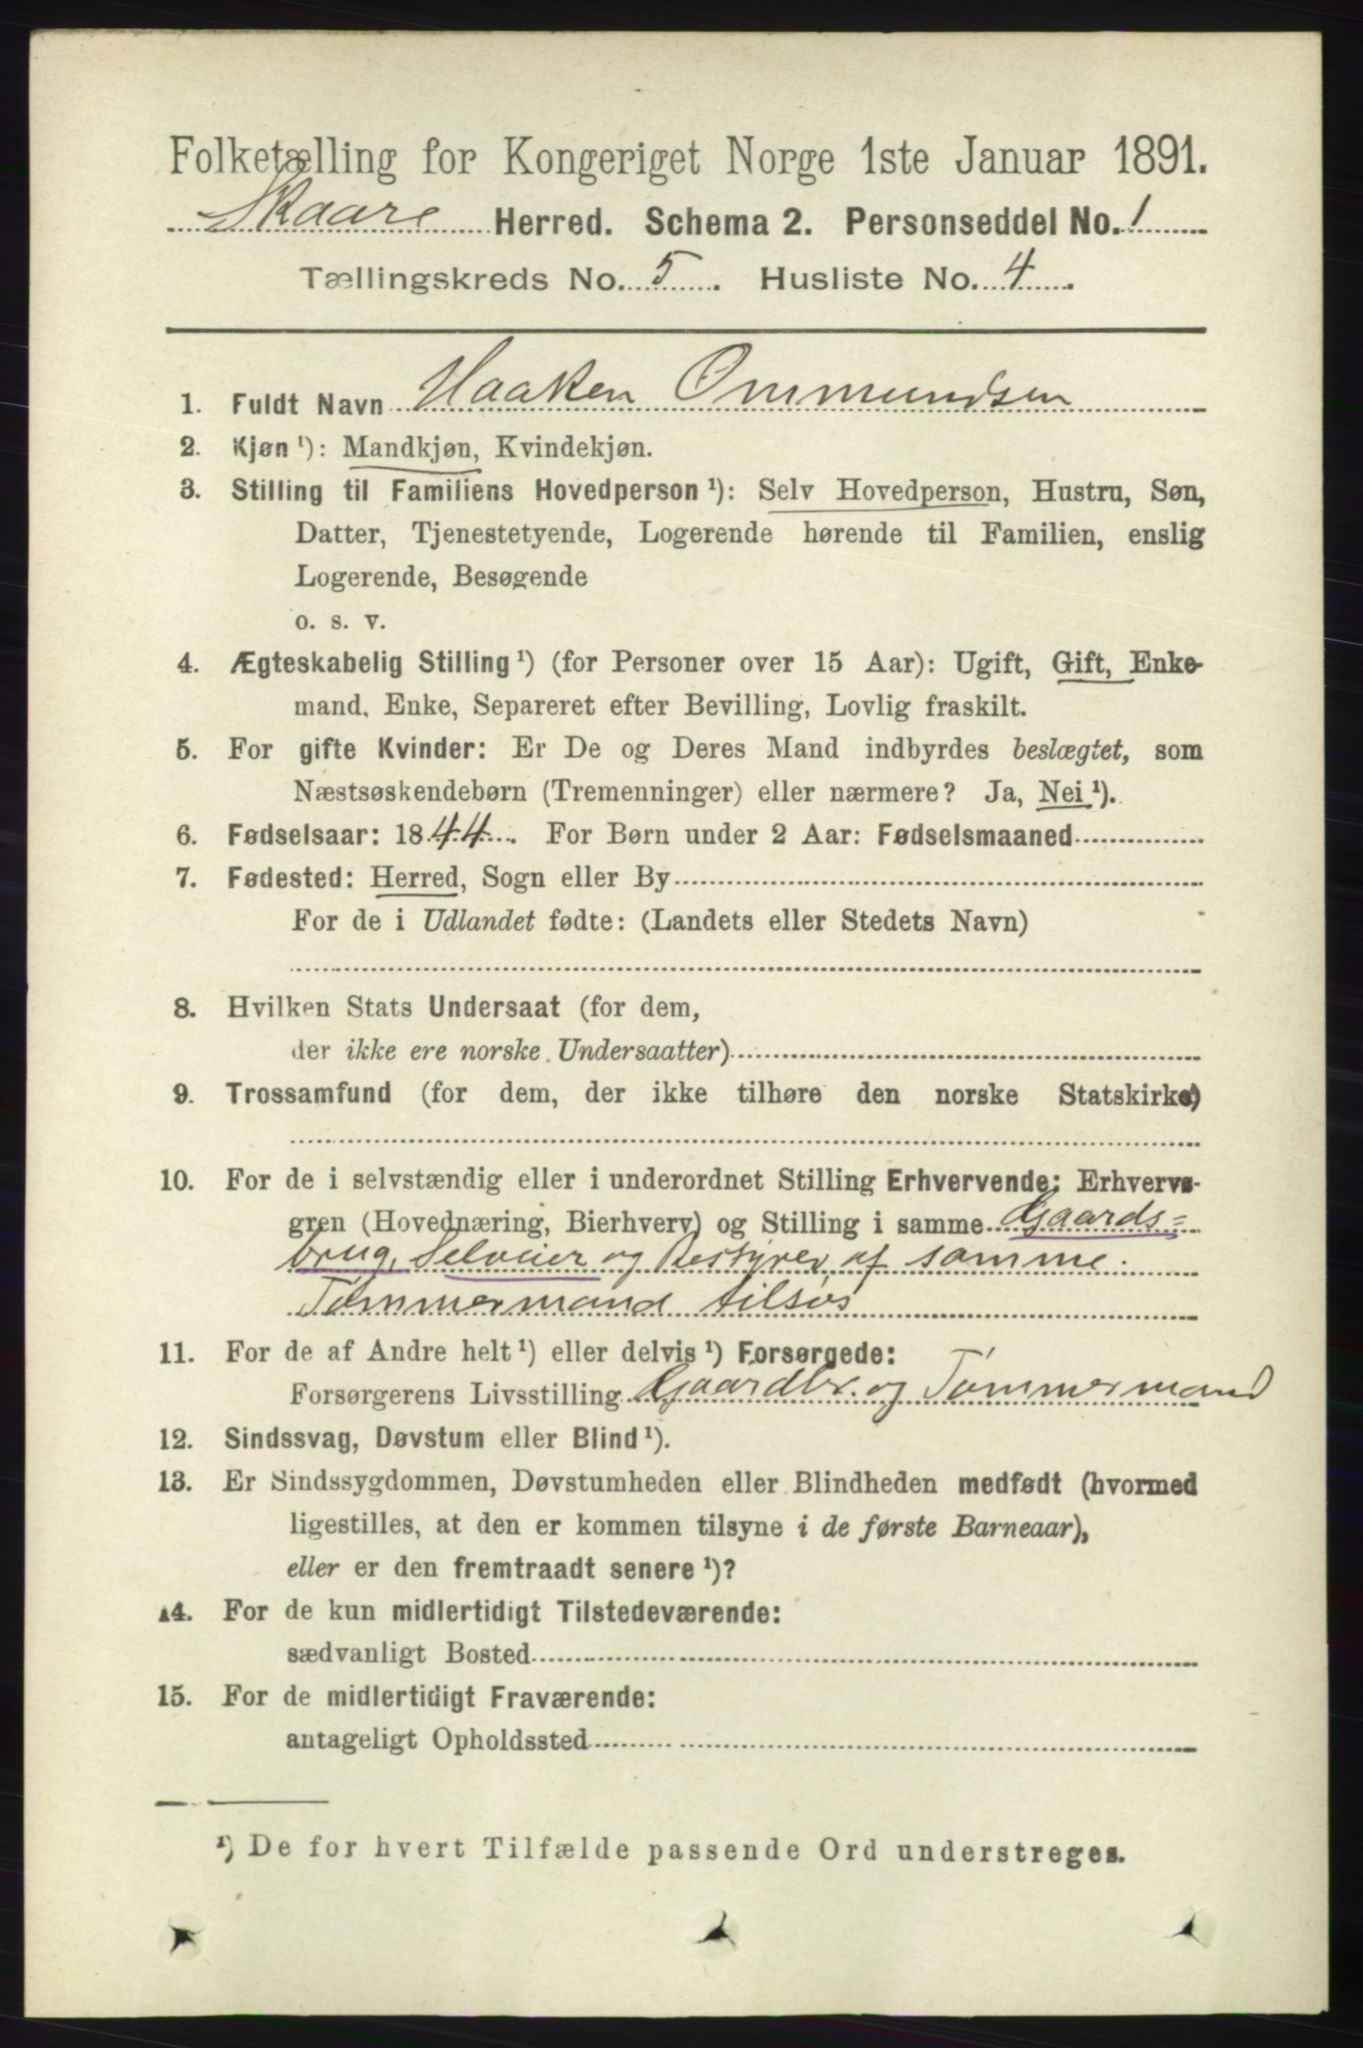 Folketælling for Kongeriget Norge 1ste Januar 1891.
Skaare Herred. Schema 2. Personseddel No. 1
Tællingskreds No. 5. Husliste No. 4.
1. Fuldt Navn Haaken Ommundsen
2. Kjøn ¹): Mandkjøn, Kvindekjøn.
3. Stilling til Familiens Hovedperson ¹): Selv Hovedperson, Hustru, Søn,
Datter, Tjenestetyende, Logerende hørende til Familien, enslig
Logerende, Besøgende
o. s. v.
4. Ægteskabelig Stilling ¹) (for Personer over 15 Aar): Ugift, Gift, Enke-
mand, Enke, Separeret efter Bevilling, Lovlig fraskilt.
5. For gifte Kvinder: Er De og Deres Mand indbyrdes beslægtet, som
Næstsøskendebørn (Tremenninger) eller nærmere? Ja, Nei ¹).
6. Fødselsaar: 1844. For Børn under 2 Aar: Fødselsmaaned
7. Fødested: Herred, Sogn eller By
For de i Udlandet fødte: (Landets eller Stedets Navn)
8. Hvilken Stats Undersaat (for dem,
der ikke ere norske Undersaatter)
9. Trossamfund (for dem, der ikke tilhøre den norske Statskirke)
10. For de i selvstændig eller i underordnet Stilling Erhvervende: Erhvervs-
gren (Hovednæring, Bierhverv) og Stilling i samme Gaards=
brug, Selveier og Bestyrer af samme.
Tømmermand tilsøs
11. For de af Andre helt ¹) eller delvis ¹) Forsørgede:
Forsørgerens Livsstilling Gaardbr. og Tømmermand
12. Sindssvag, Døvstum eller Blind ¹).
13. Er Sindssygdommen, Døvstumheden eller Blindheden medfødt (hvormed
ligestilles, at den er kommen tilsyne i de første Barneaar),
eller er den fremtraadt senere ¹)?
14. For de kun midlertidigt Tilstedeværende:
sædvanligt Bosted
15. For de midlertidigt Fraværende:
antageligt Opholdssted
¹) De for hvert Tilfælde passende Ord understreges.